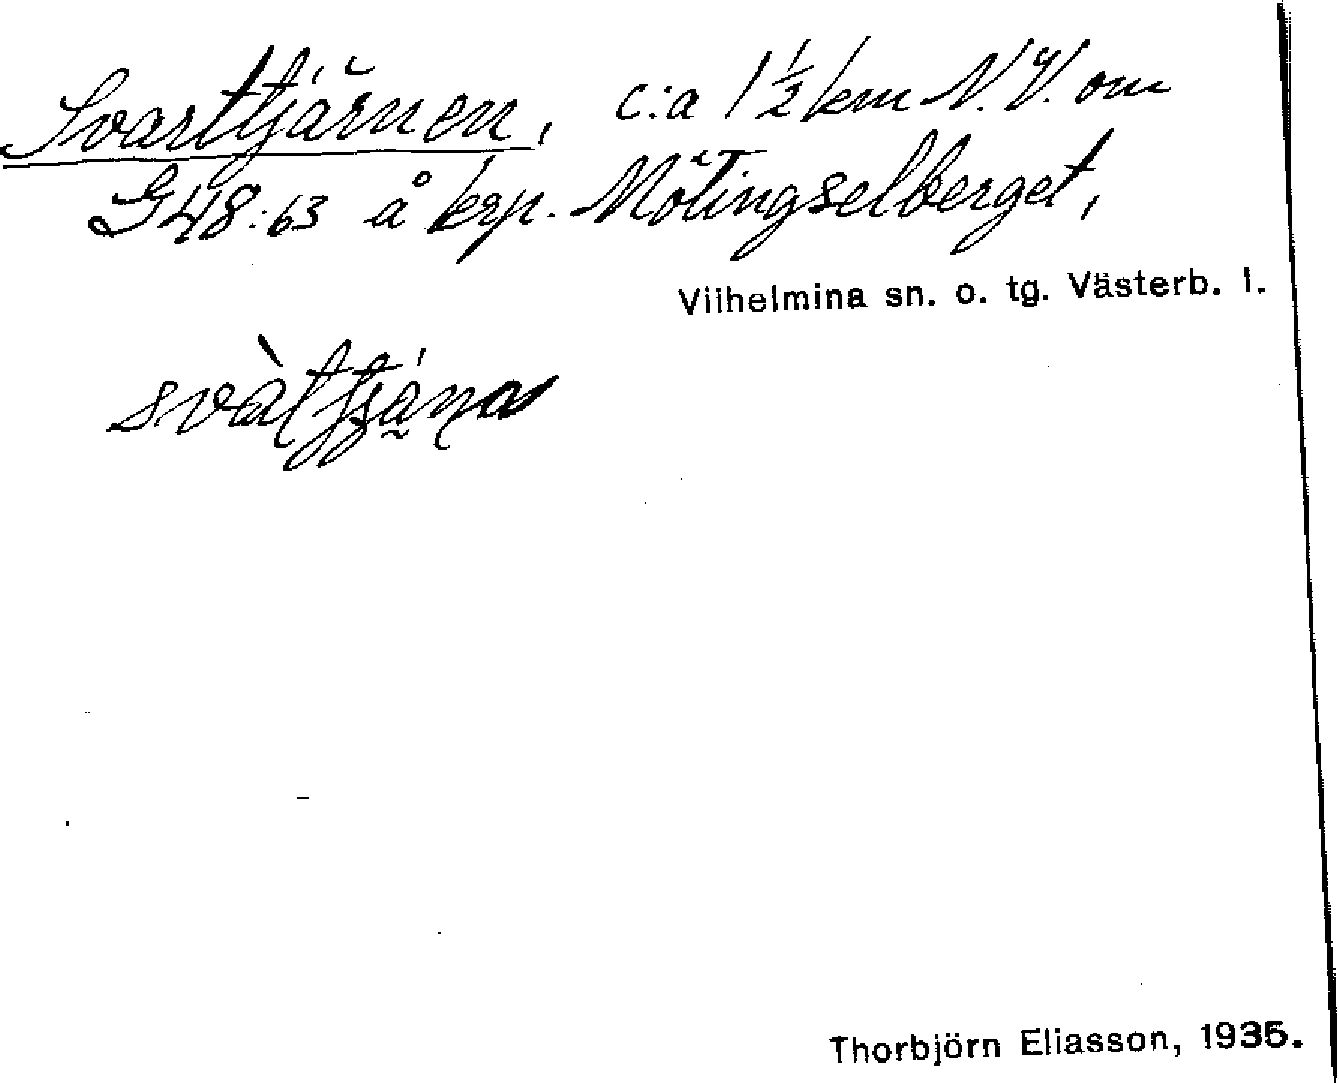 Svarttjärnen, c:a 1 ½ km N.V. om
G48:63 å krp. Mötingselberget,
Vilhelmina sn. o. tg. Västerb. l.
Thorbjörn Eliasson, 1935.